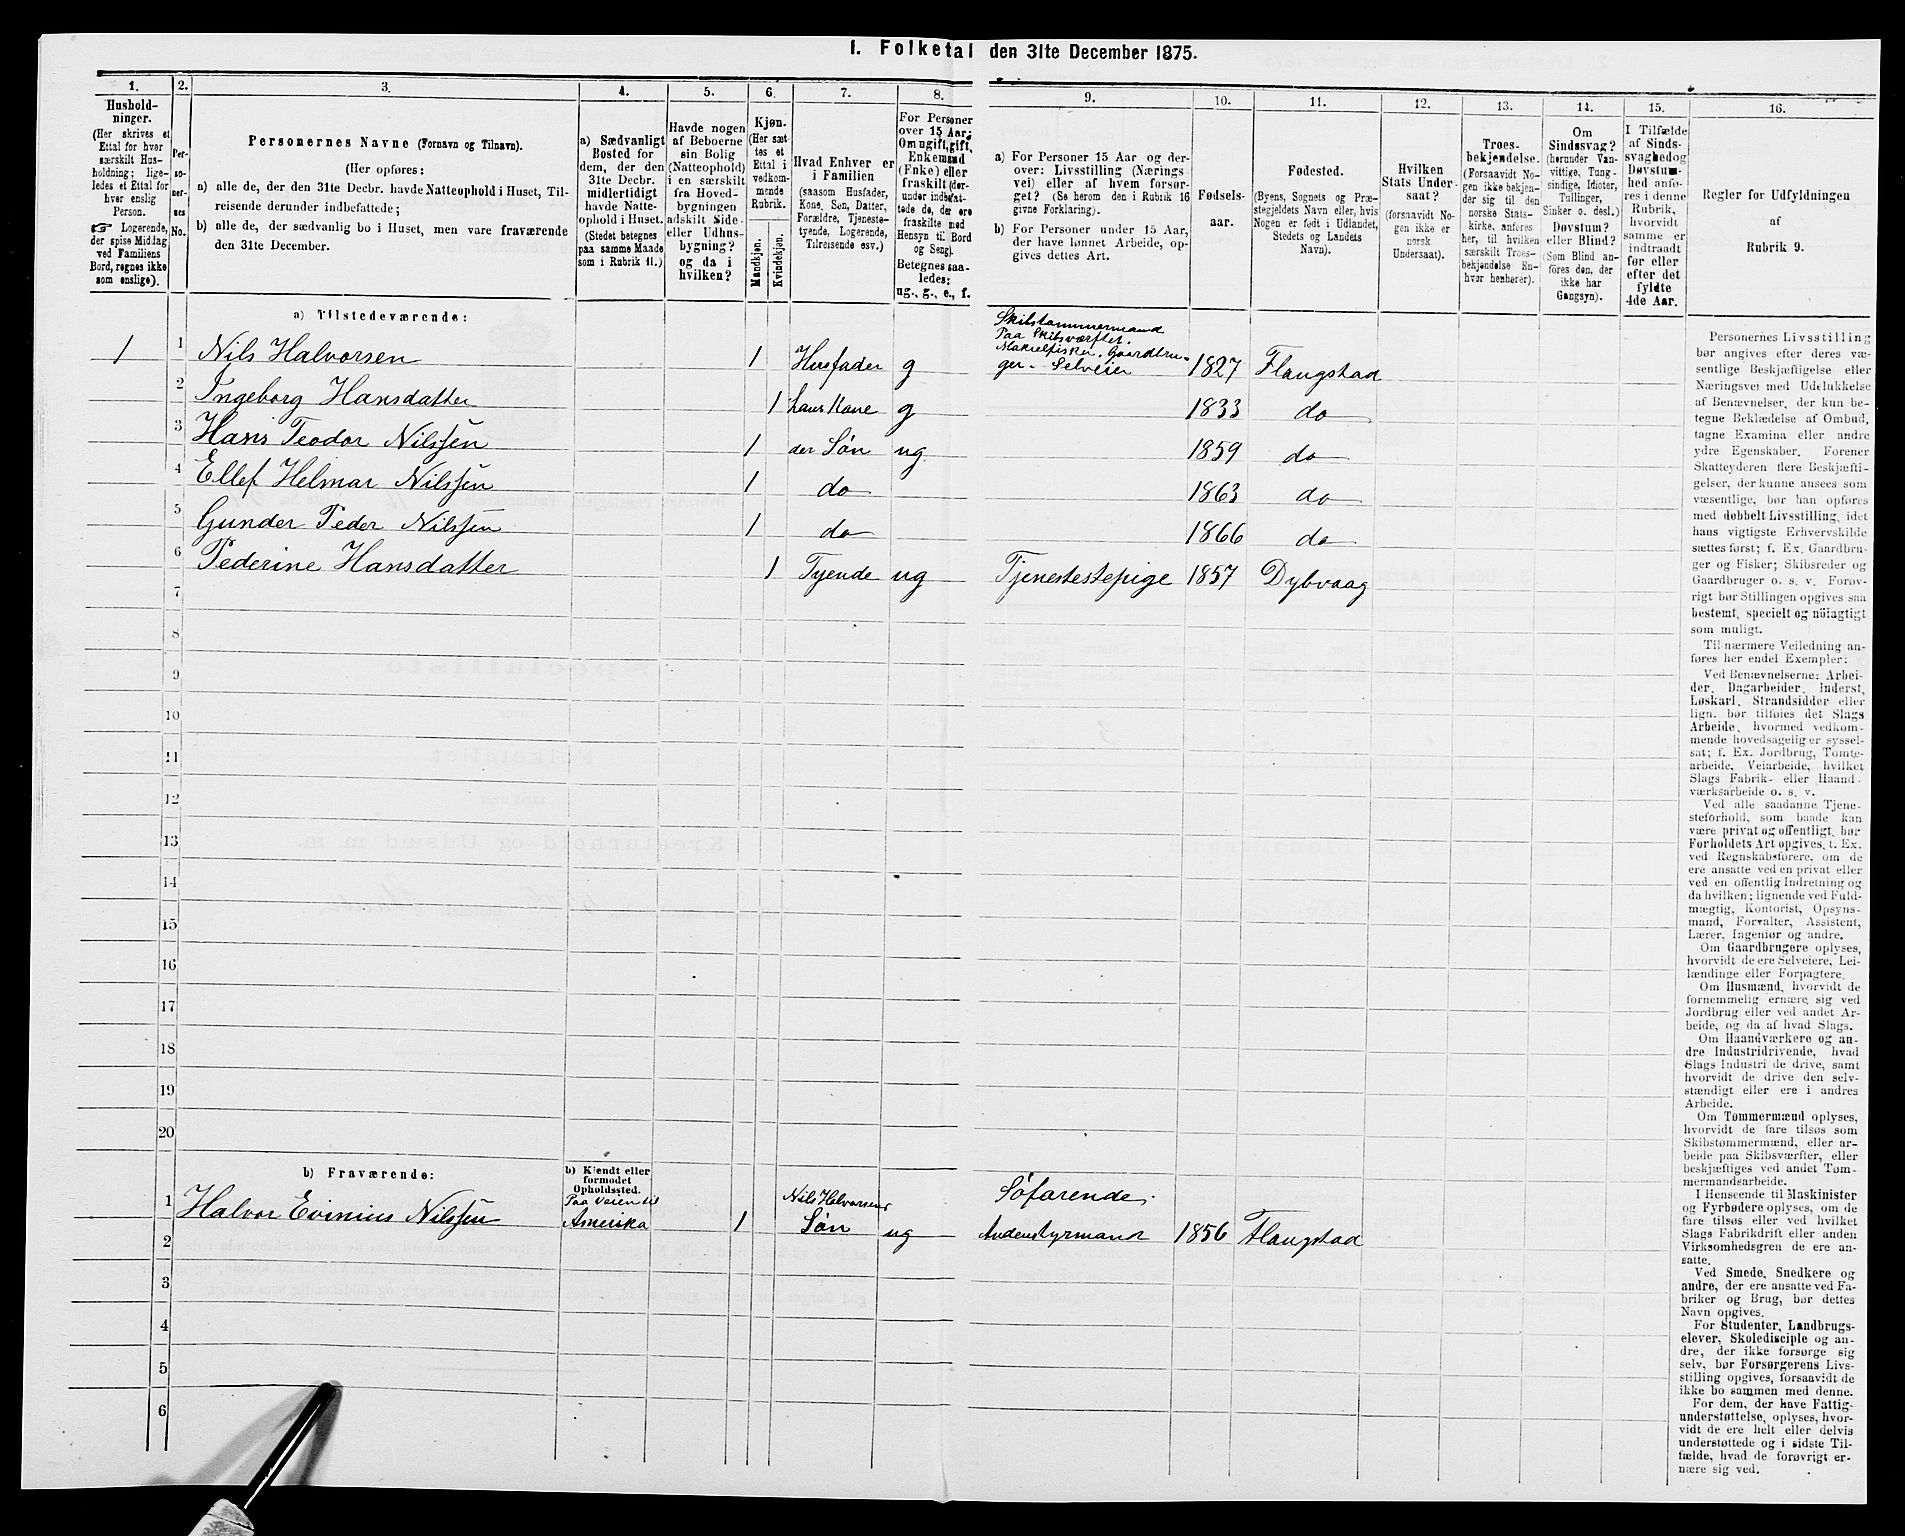 1. Folketal den 31te December 1875.
1.
2.
3.
4.
5.
6.
7.
8.
9.
10.
11.
12.
13.
14.
15.
16.
Hushold-
ninger.
(Her skrives et
Ettal for hver
særskilt Hus-
holdning; lige-
ledes et Ettal for
hver enslig
Person.
☞ Logerende,
der spise Middag
ved Familiens
Bord, regnes ikke
som enslige).
Per-
so-
ner-
nes
No.
Personernes Navne (Fornavn og Tilnavn).
(Her opføres:
a) alle de, der den 31te Decbr. havde Natteophold i Huset, Til-
reisende derunder indbefattede;
b) alle de, der sædvanlig bo i Huset, men vare fraværende
den 31te December.
a) Sædvanligt
Bosted for
dem, der den
31te Decbr.
midlertidigt
havde Natte-
ophold i Huset.
(Stedet betegnes
paa samme Maade
som i Rubrik 11.)
Havde nogen
af Beboerne
sin Bolig
(Natteophold)
i en særskilt
fra Hoved-
bygningen
adskilt Side-
eller Udhus-
bygning?
og da i
hvilken?
Kjøn.
(Her sæt-
tes et
Ettal i
vedkom-
mende
Rubrik.
Mandkjøn.
Kvindekjøn.
Hvad Enhver er
i Familien
(saasom Husfader,
Kone, Søn, Datter,
Forældre, Tjeneste-
tyende, Logerende,
Tilreisende osv.)
For Personer
over 15 Aar:
Om ugift, gift,
Enkemand
(Enke) eller
fraskilt (der-
under indbefat-
tede de, der ere
fraskilte med
Hensyn til Bord
og Seng).
Betegnes saa-
ledes:
ug., g., e., f.
a) For Personer 15 Aar og der-
over: Livsstilling (Nærings
vei) eller af hvem forsør-
get? (Se herom den i Rubrik 16
givne Forklaring).
b) For Personer under 15 Aar,
der have lønnet Arbeide, op-
gives dettes Art.
Fødsels-
aar.
Fødested.
(Byens, Sognets og Præ-
stegjeldets Navn eller, hvis
Nogen er født i Udlandet,
Stedets og Landets
Navn).
Hvilken
Stats Under-
saat?
(forsaavidt No-
gen ikke er
norsk
Undersaat).
Troes-
bekjendelse.
(Forsaavidt No-
gen ikke bekjen-
der sig til den
norske Stats-
kirke, anføres
her, til hvilken
særskilt Troes-
bekjendelse En-
hver henhører).
Om
Sindssvag?
(herunder Van-
vittige, Tung-
sindige, Idioter,
Tullinger,
Sinker o. desl.)
Døvstum?
eller Blind?
(Som Blind an-
føres den, der
ikke har
Gangsyn).
I Tilfælde
af Sinds-
svaghed og
Døvstum-
hed anfø-
res i denne
Rubrik,
hvorvidt
samme er
indtraadt
før eller
efter det
fyldte
4de Aar.
Regler for Udfyldningen
af
Rubrik 9.
a) Tilstedeværende:
Skibstømmermand
Paa Skibsværftet.
Makrelfisker. Gaardbru-
1 1 Nils Halvorsen 1 Husfader g ger. Selveier 1827 Flaugstad
2 Ingeborg Hansdatter 1 hans Kone g 1833 do
3 Hans Teodor Nilssen 1 der Søn ug 1859 do
4 Ellef Helmar Nilssen 1 do 1863 do
5 Gunder Peder Nilssen 1 do 1866 do
6 Pederine Hansdatter 1 Tyende ug Tjenestestepige 1857 Dybvaag
7
8
9
10
11
12
13
14
15
16
17
18
19
20
b) Fraværende:
b) Kjendt eller
formodet
Opholdssted.
1 Halvor Evinius Nilssen Paa Veien til
Amerika 1 Nils Halvorsens
Søn ug Søfarende.
Andenstyrmand 1856 Flaugstad
2
3
4
5
6
Personernes Livsstilling
bør angives efter deres væ-
sentlige Beskjæftigelse eller
Næringsvei med Udelukkelse
af Benævnelser, der kun be-
tegne Beklædelse af Ombud,
tagne Examina eller andre
ydre Egenskaber. Forener
Skatteyderen flere Beskjæfti-
gelser, der kunne ansees som
væsentlige, bør han opføres
med dobbelt Livsstilling, idet
hans vigtigste Erhvervskilde
sættes først; f. Ex. Gaardbru-
ger og Fisker; Skibsreder og
Gaardbruger o. s. v. Forøv-
rigt bør Stillingen opgives saa
bestemt, specielt og nøiagtigt
som muligt.
Til nærmere Veiledning an-
føres her endel Exempler:
Ved Benævnelserne: Arbei-
der, Dagarbeider, Inderst,
Løskarl, Strandsidder eller
lign. bør tilføies det Slags
Arbeide, hvormed vedkom-
mende hovedsagelig er syssel-
sat; f. Ex. Jordbrug, Tomte-
arbeide, Veiarbeide, hvilket
Slags Fabrik- eller Haand-
værksarbeide o. s. v.
Ved alle saadanne Tjene-
steforhold, som baade kan
være privat og offentligt, bør
Forholdets Art opgives, t. Ex.
ved Regnskabsførere, om de
ere ansatte ved en privat eller
ved en offentlig Indretning og
da hvilken; lignende ved Fuld-
mægtig, Kontorist, Opsyns-
mand, Forvalter, Assistent,
Lærer, Ingeniør og andre.
Om Gaardbrugere oplyses,
hvorvidt de ere Selveiere, Lei-
lændinge eller Forpagtere.
Om Husmænd, hvorvidt de
fornemmelig ernære sig ved
Jordbrug eller ved andet Ar-
beide, og da af hvad Slags.
Om Haandværkere og an-
dre Industridrivende, hvad
Slags Industri de drive, samt
hvorvidt de drive den selv-
stændigt eller ere i andres
Arbeide.
Om Tømmermænd oplyses,
hvorvidt de fare tilsøs som
Skibstømmermænd, eller ar-
beide paa Skibsværfter, eller
beskjæftiges ved andet Tøm-
mermandsarbeide.
I Henseende til Maskinister
og Fyrbødere oplyses, om de
fare tilsøs eller ved hvilket
Slags Fabrikdrift eller anden
Virksomhedsgren de ere an-
satte.
Ved Smede, Snedkere og
andre, der ere ansatte ved Fa-
briker og Brug, bør dettes
Navn opgives.
For Studenter, Landbrugs-
elever, Skoledisciple og an-
dre, der ikke forsørge sig
selv, bør Forsørgerens Livs-
stilling opgives, forsaavidt de
ikke bo sammen med denne.
For dem, der have Fattig-
understøttelse, oplyses, hvor-
vidt de ere helt eller delvis
understøttede og i sidste Til-
fælde, hvad de forøvrigt er-
nære sig ved.